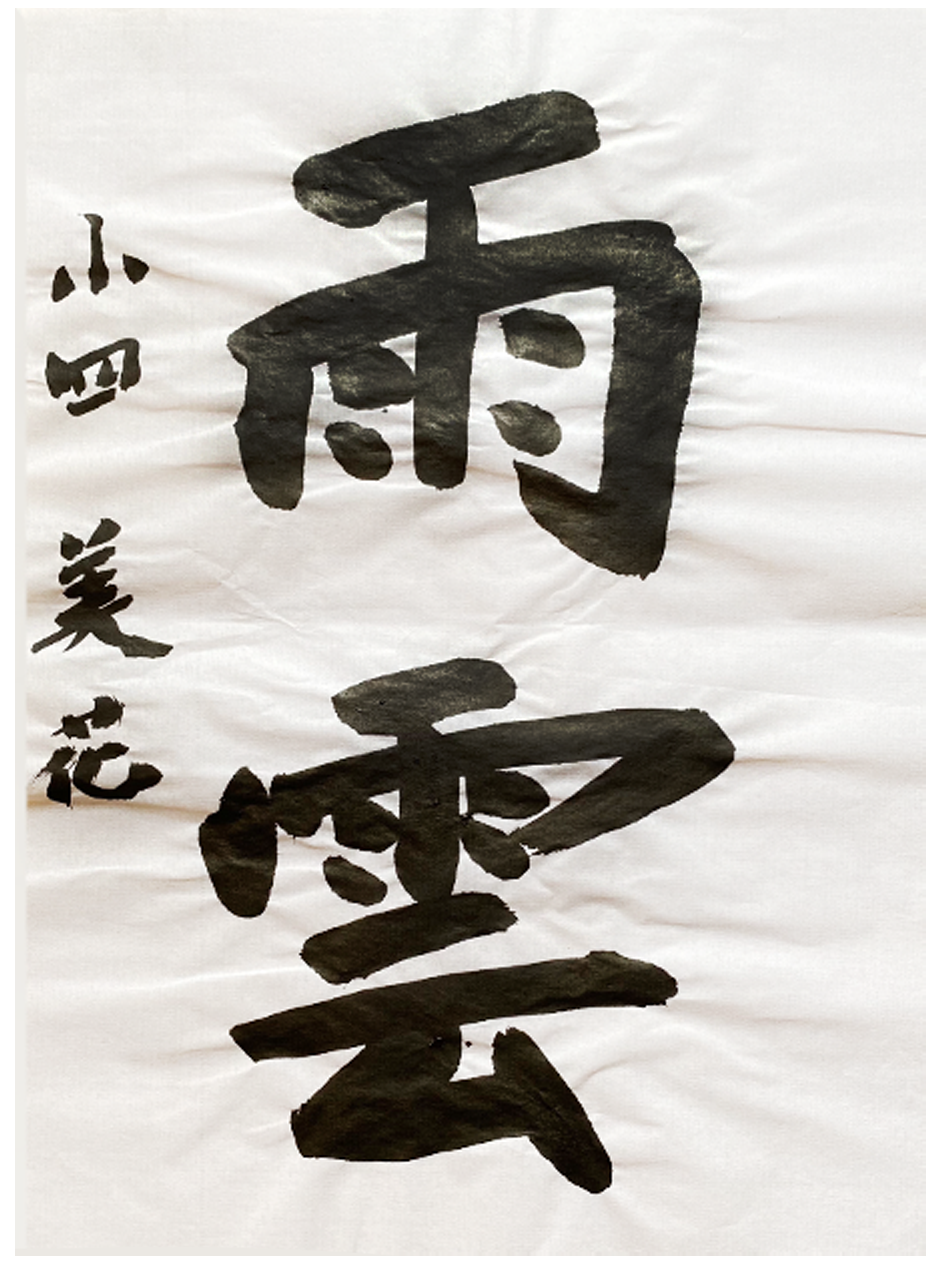 雨雲
小四 美花